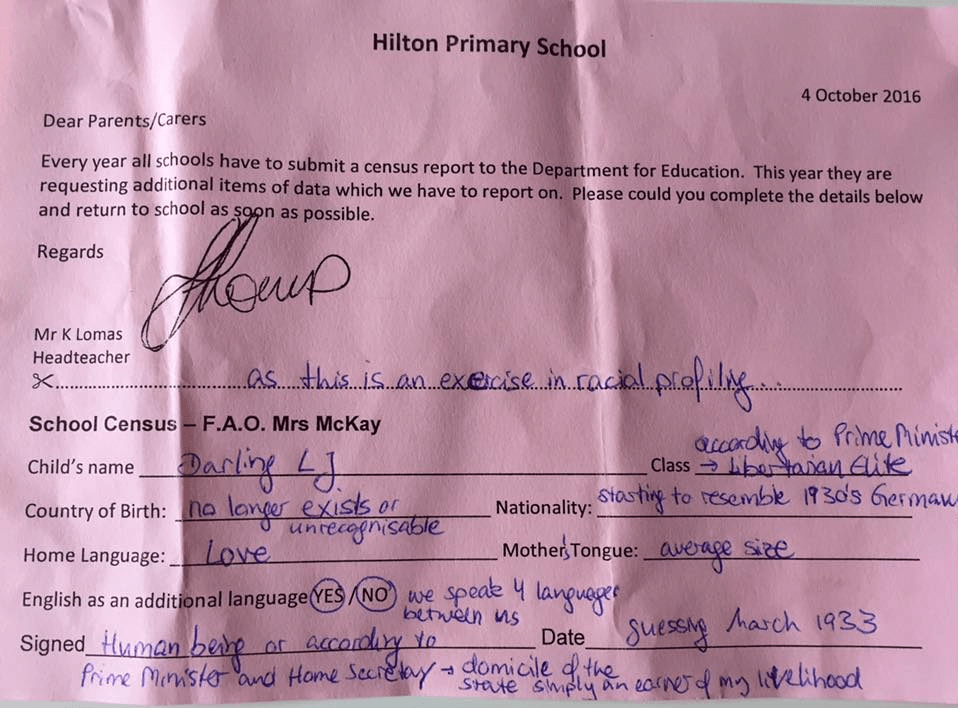 Hilton Primary School
4 October 2016
Dear Parents/Carers
Every year all schools have to submit a census report to the Department for Education. This year they are
requesting additional items of data which we have to report on. Please could you complete the details below
and return to school as soon as possible.
Regards
Mr K Lomas
Headteacher
as this is an exercise in racial profiling...
School Census – F.A.O. Mrs McKay
according to Prime Ministe
Child's name Darling LJ. Class → Libertarian Elite
Country of Birth: no longer exists or Nationality: starting to resemble 1930's German
unrecognisable
Home Language: Love Mother's Tongue: average size
English as an additional language YES/NO we speak 4 languages
between us
Signed Human being or according to Date guessing March 1933
Prime Minister and Home Secretary → domicile of the
state simply an earner of my livelihood